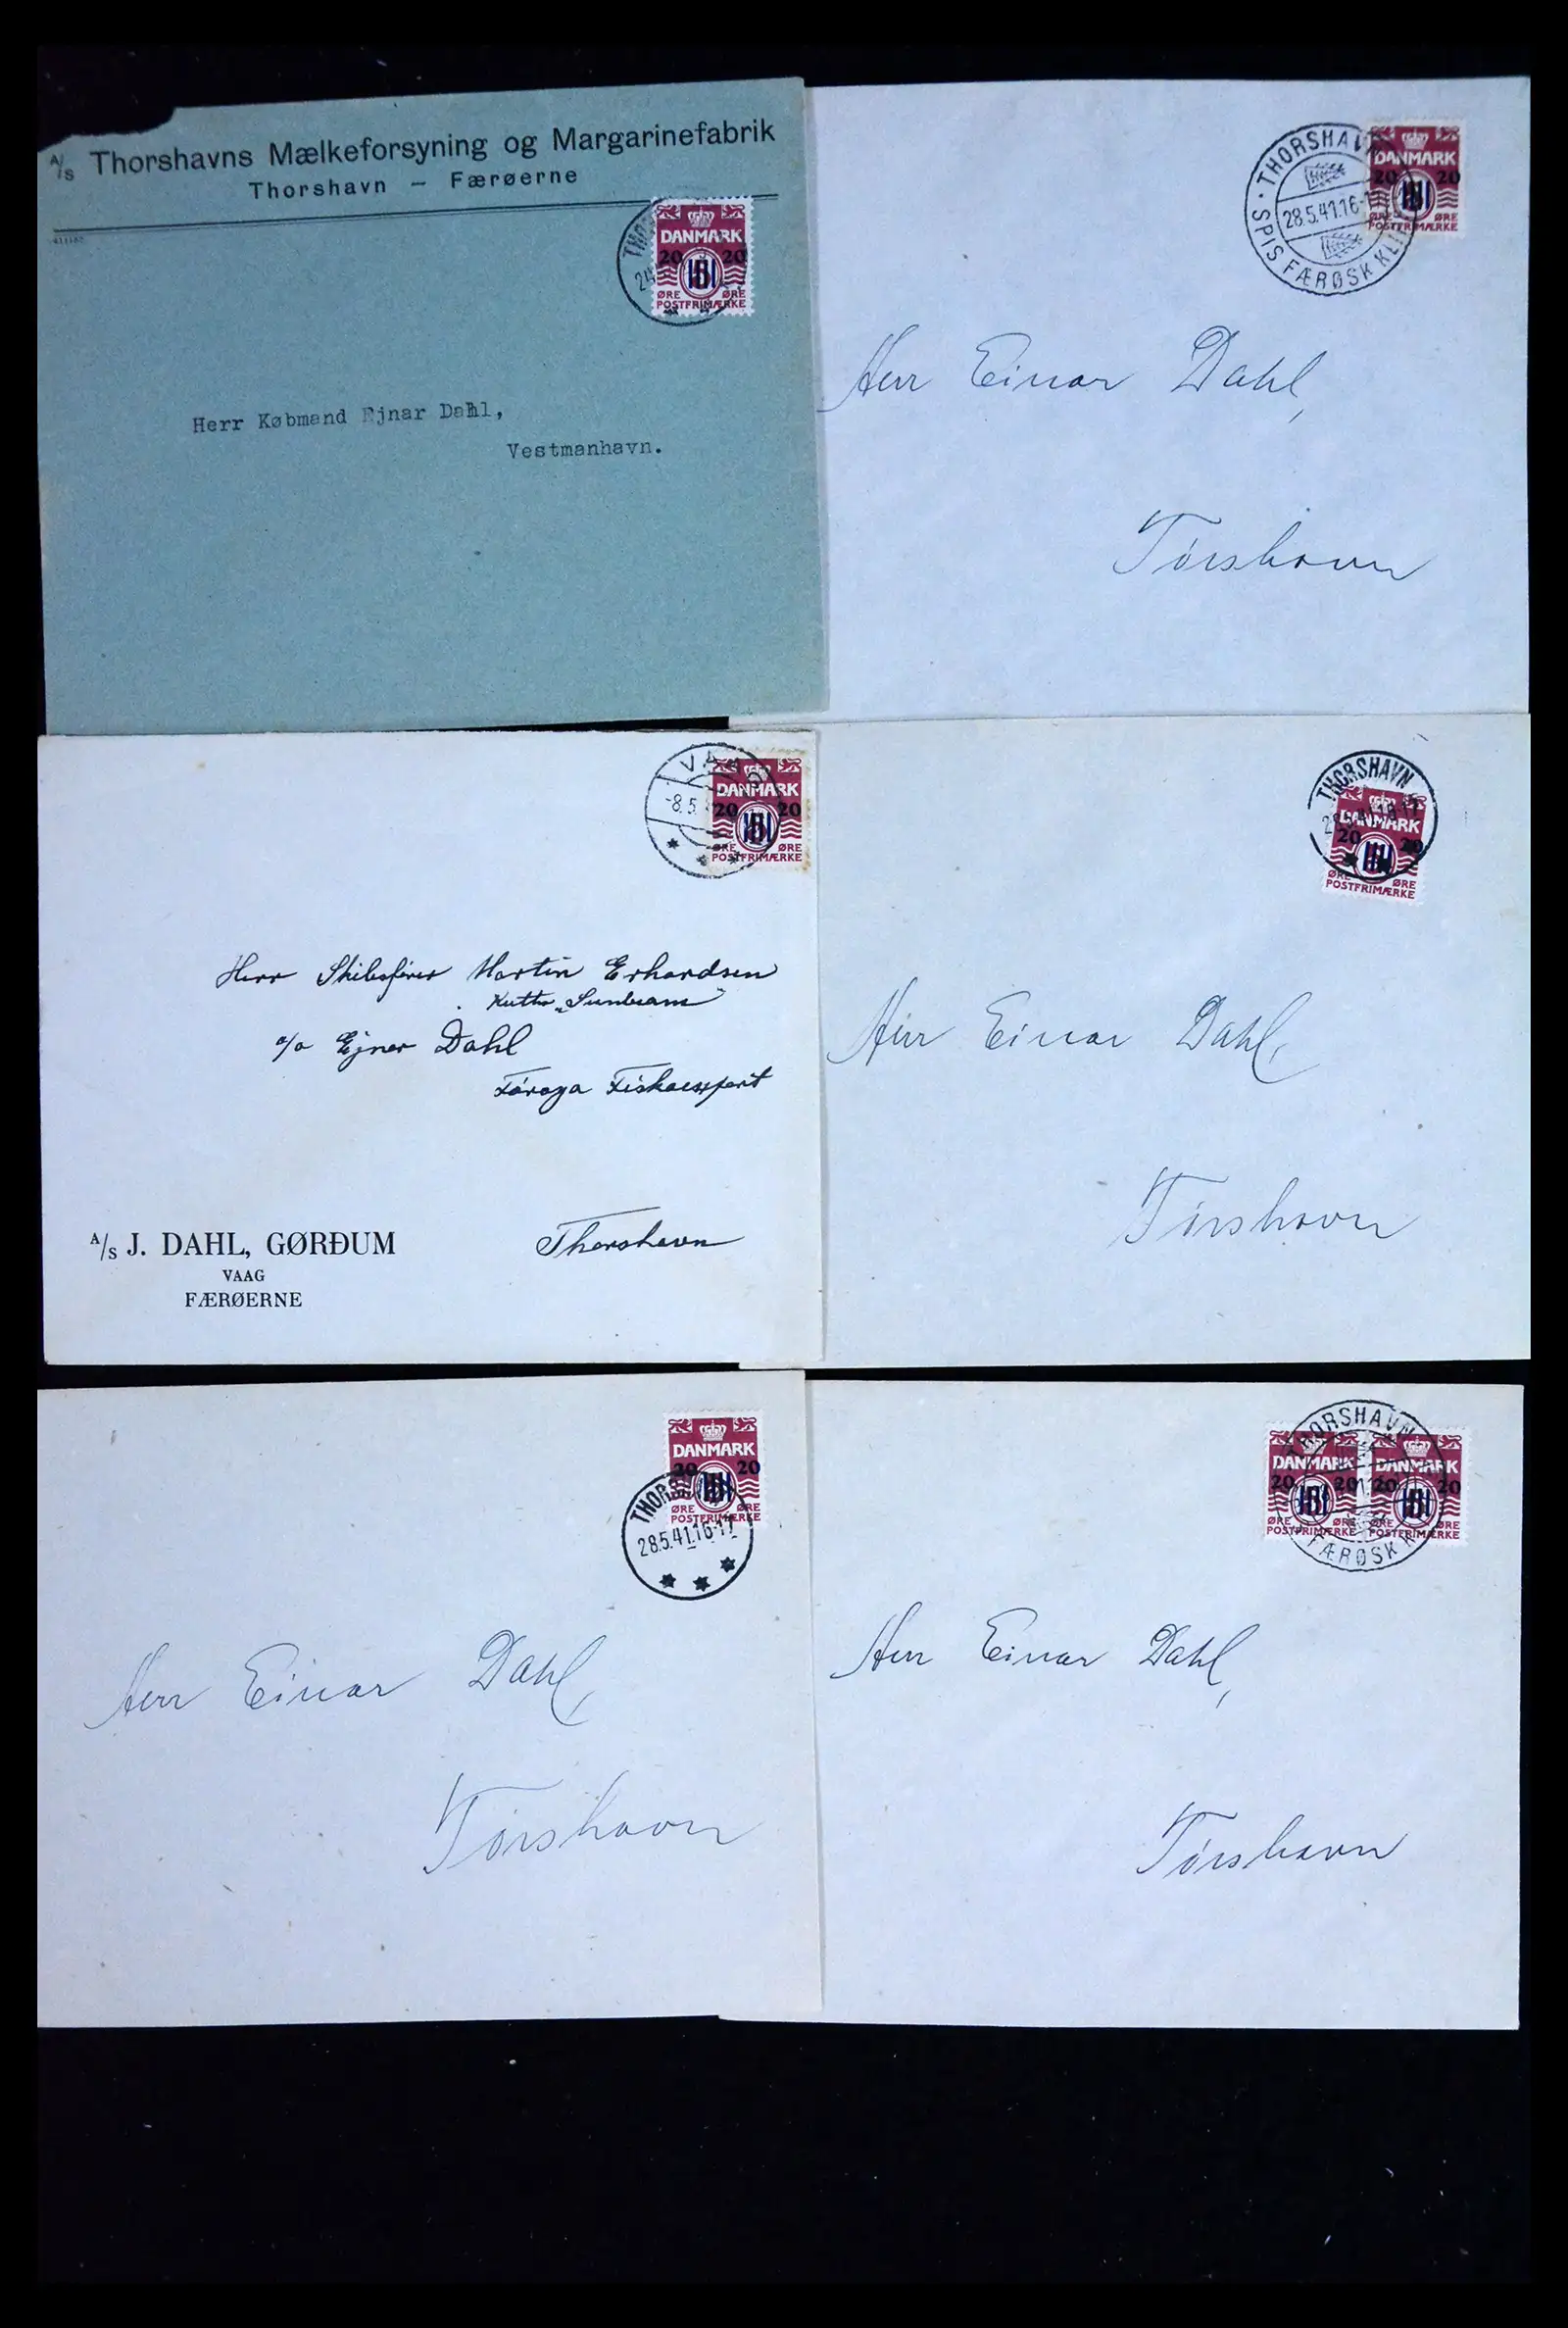 A/S Thorshavns Mælkeforsyning og Margarinefabrik
Thorshavn — Færøerne
DANMARK
20 20
ØRE ØRE
POSTFRIMÆRKE
Herr Købmand Ejnar Dahl,
Vestmanhavn.
THORSHAVN
28.5.41.16-
SPIS FÆRØSK
DANMARK
20 20
ØRE ØRE
POSTFRIMÆRKE
Herr Einar Dahl,
Tórshavn
VAAG
-8.5.
DANMARK
20 20
ØRE ØRE
POSTFRIMÆRKE
Herr Skibsfører Martin Erhardsen
Kutter „Sunbeam"
c/o Ejner Dahl
Föroya Fiskaexport
Thorshavn
A/S J. DAHL, GØRÐUM
VAAG
FÆRØERNE
THORSHAVN
28.5.41.16-17
DANMARK
20 20
ØRE ØRE
POSTFRIMÆRKE
Herr Einar Dahl,
Tórshavn
DANMARK
20 20
ØRE ØRE
POSTFRIMÆRKE
28.5.41.16-17
Herr Einar Dahl,
Tórshavn
THORSHAVN
FÆRØSK
DANMARK DANMARK
20 20 20 20
ØRE ØRE ØRE ØRE
POSTFRIMÆRKE POSTFRIMÆRKE
Herr Einar Dahl,
Tórshavn